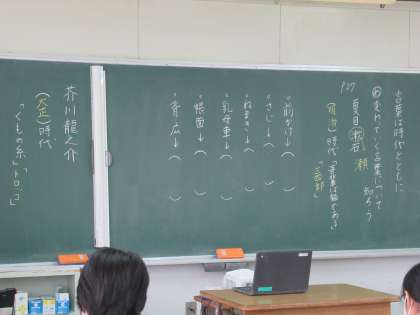 言葉は時代とともに
め 変わっていく言葉について
知ろう
1/27
夏目漱石
瀬
(明治)時代「吾輩は猫である」
「三四郎」
・前かけ→( )
・さじ→( )
・ねまき→( )
・乳母車→( )
・帳面→( )
・背広→( )
芥川龍之介
(大正)時代
「くもの糸」「トロッコ」